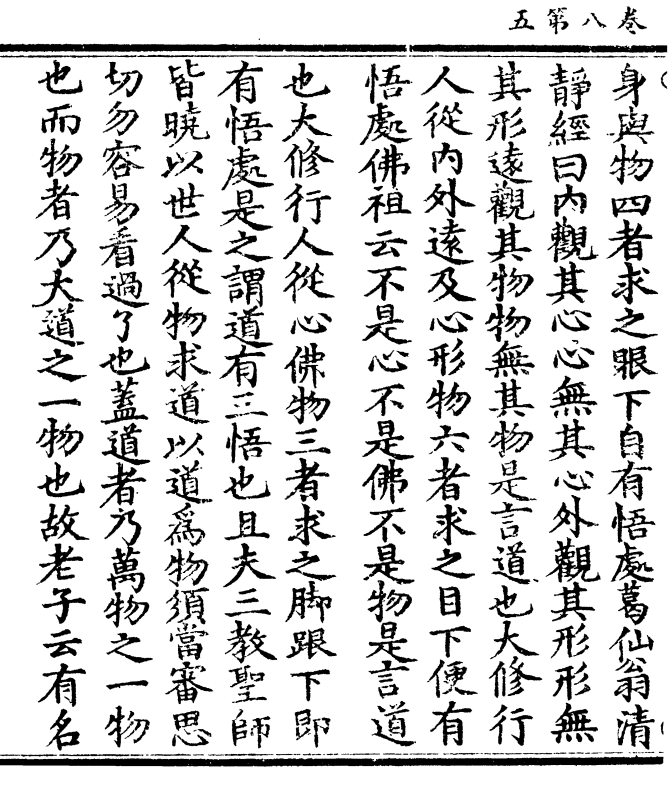 卷八第五
身與物四者求之眼下自有悟處葛仙翁清
靜經曰內觀其心心無其心外觀其形形無
其形遠觀其物物無其物是言道也大修行
人從內外遠及心形物六者求之目下便有
悟處佛祖云不是心不是佛不是物是言道
也大修行人從心佛物三者求之脚跟下即
有悟處是之謂道有三悟也且夫三教聖師
皆曉以世人從物求道以道爲物須當審思
切勿容易看過了也蓋道者乃萬物之一物
也而物者乃大道之一物也故老子云有名